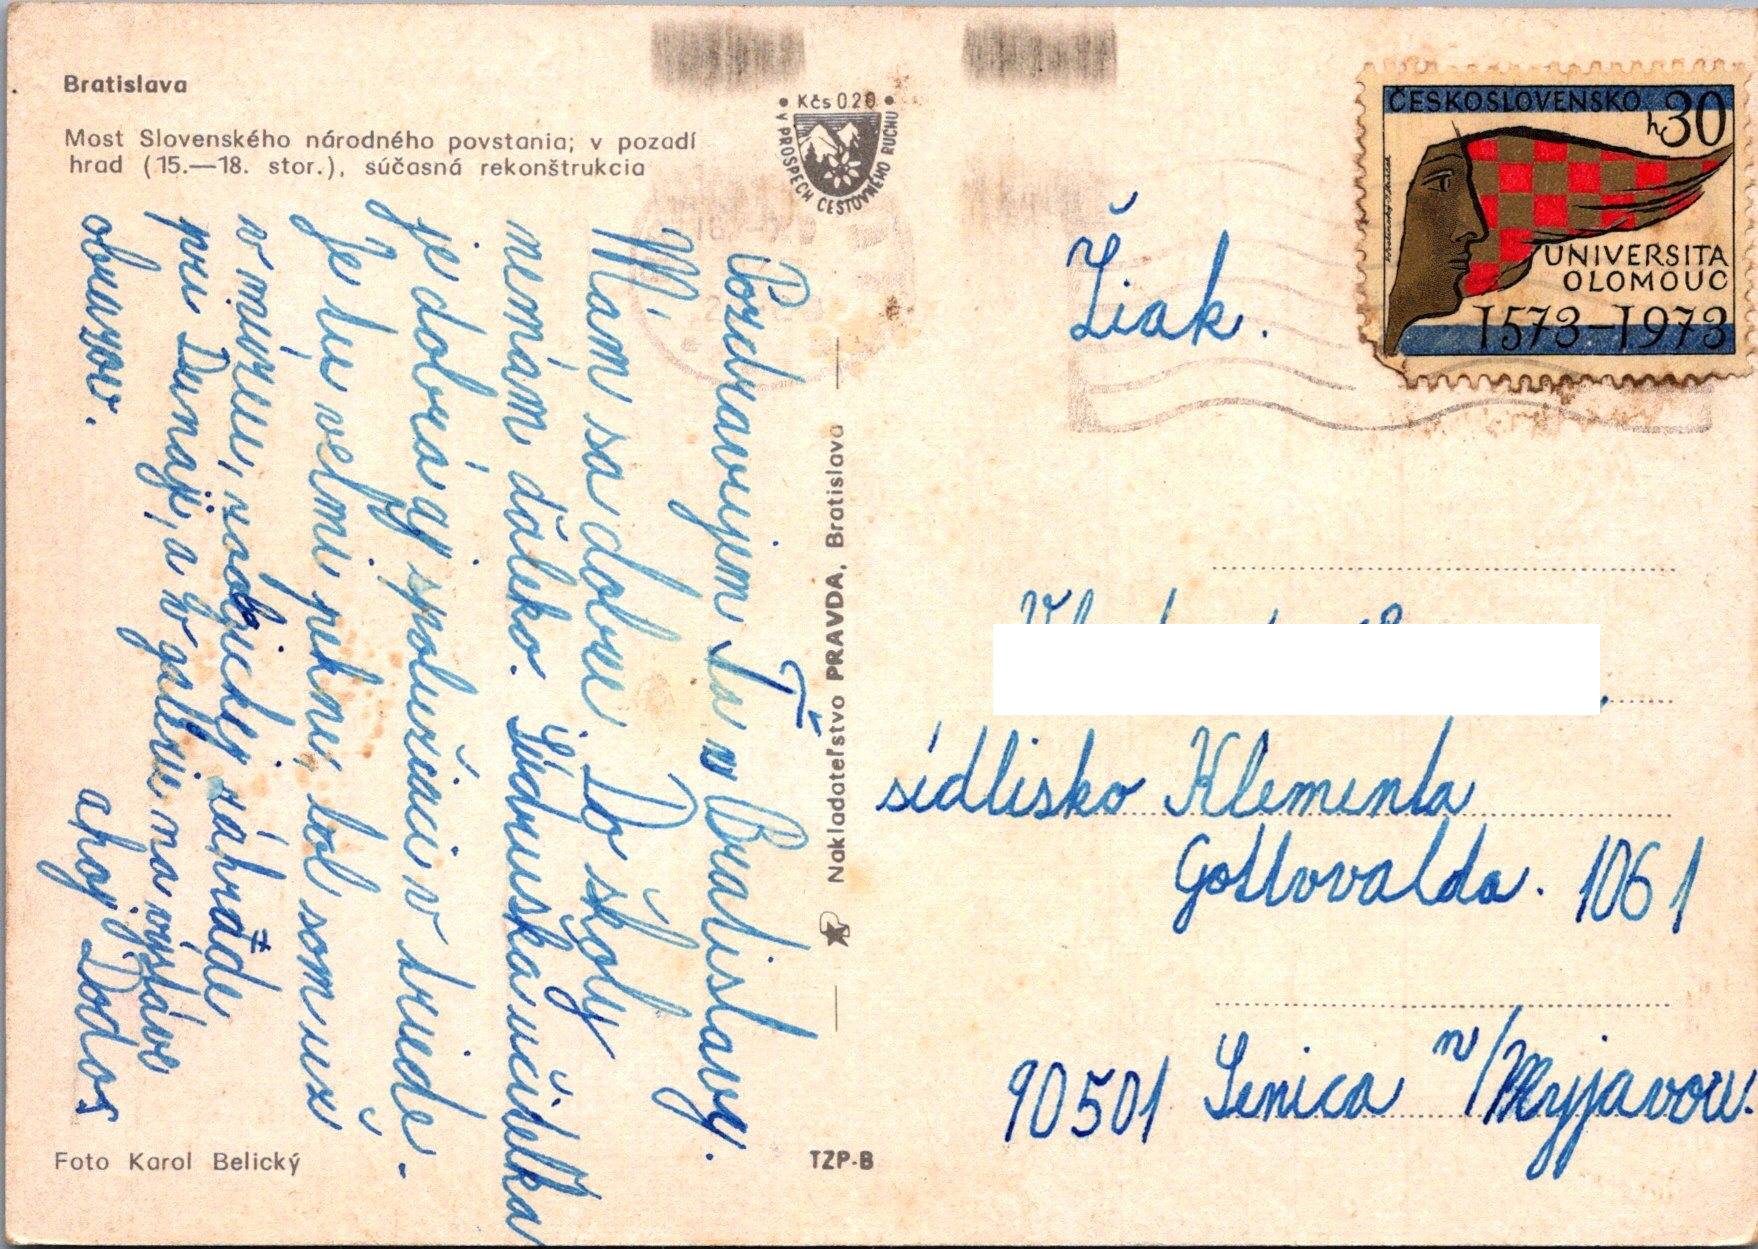 Bratislava
Most Slovenského národného povstania; v pozadí
hrad (15.—18. stor.), súčasná rekonštrukcia
• Kčs 0.20 •
V PROSPECH CESTOVNÉHO RUCHU
ČESKOSLOVENSKO
h 30
UNIVERSITA
OLOMOUC
1573–1973
Pozdravujem Ťa z Bratislavy.
Mám sa dobre. Do školy
nemám ďaleko. Súdružka učitelka
je dobrá aj spolužiaci v triede.
Je tu velmi pekne, bol som už
v múzeu, zoologickej záhrade
pri Dunaji, a v galérii na výstave
obrazov.
ahoj Dodos
Nakladateľstvo PRAVDA, Bratislava
Žiak.
sídlisko Klementa
Gottwalda. 1061
90501 Senica n/Myjavou.
Foto Karol Belický
TZP-B